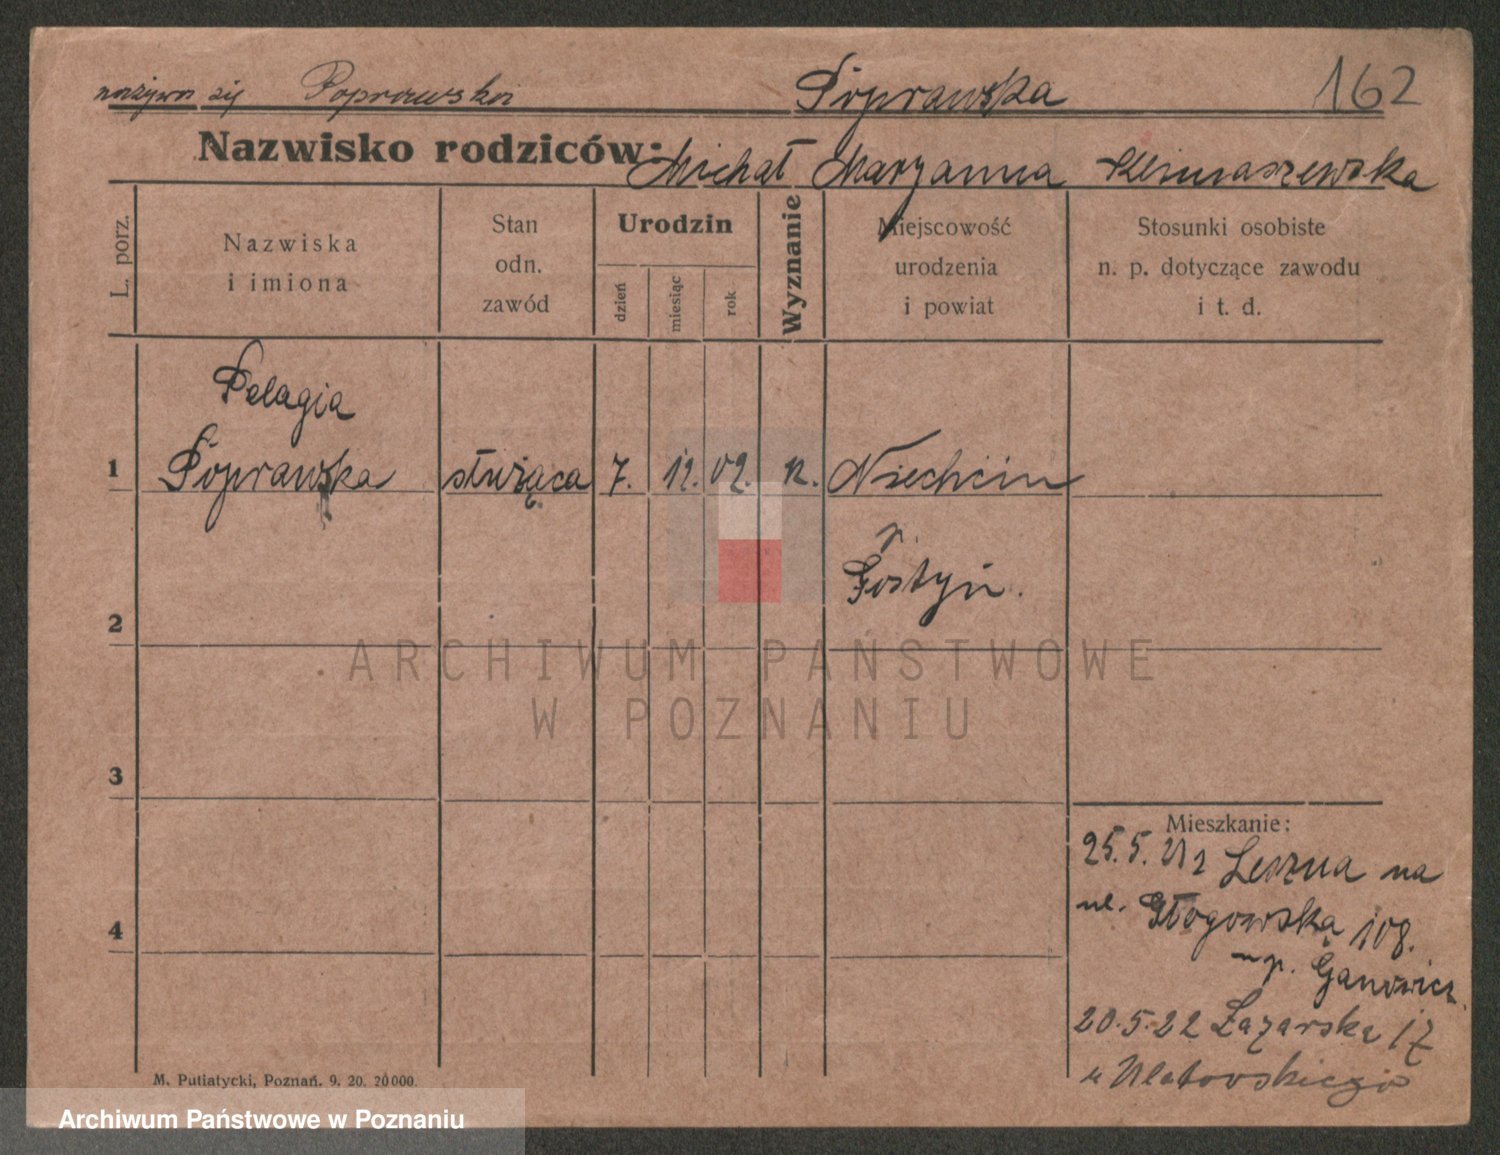 nazywa się Poprawska Poprawska 162
Nazwisko rodziców: Michał Maryanna Klimaszewska
L. porz.
Nazwiska
i imiona
Stan
odn.
zawód
Urodzin
dzień
miesiąc
rok
Wyznanie
Miejscowość
urodzenia
i powiat
Stosunki osobiste
n. p. dotyczące zawodu
i t. d.
Pelagia
1 Poprawska służąca 7. 12. 02. Niechcin
p.
Gostyń.
2
ARCHIWUM PAŃSTWOWE
W POZNANIU
3
4
Mieszkanie:
25.5. 21 z Leszna na
ul. Głogowską 108.
p. Ganowicz.
20.5.22 Łazarska 17
u Ulatowskiego
M. Putiatycki, Poznań. 9. 20. 20000.
Archiwum Państwowe w Poznaniu